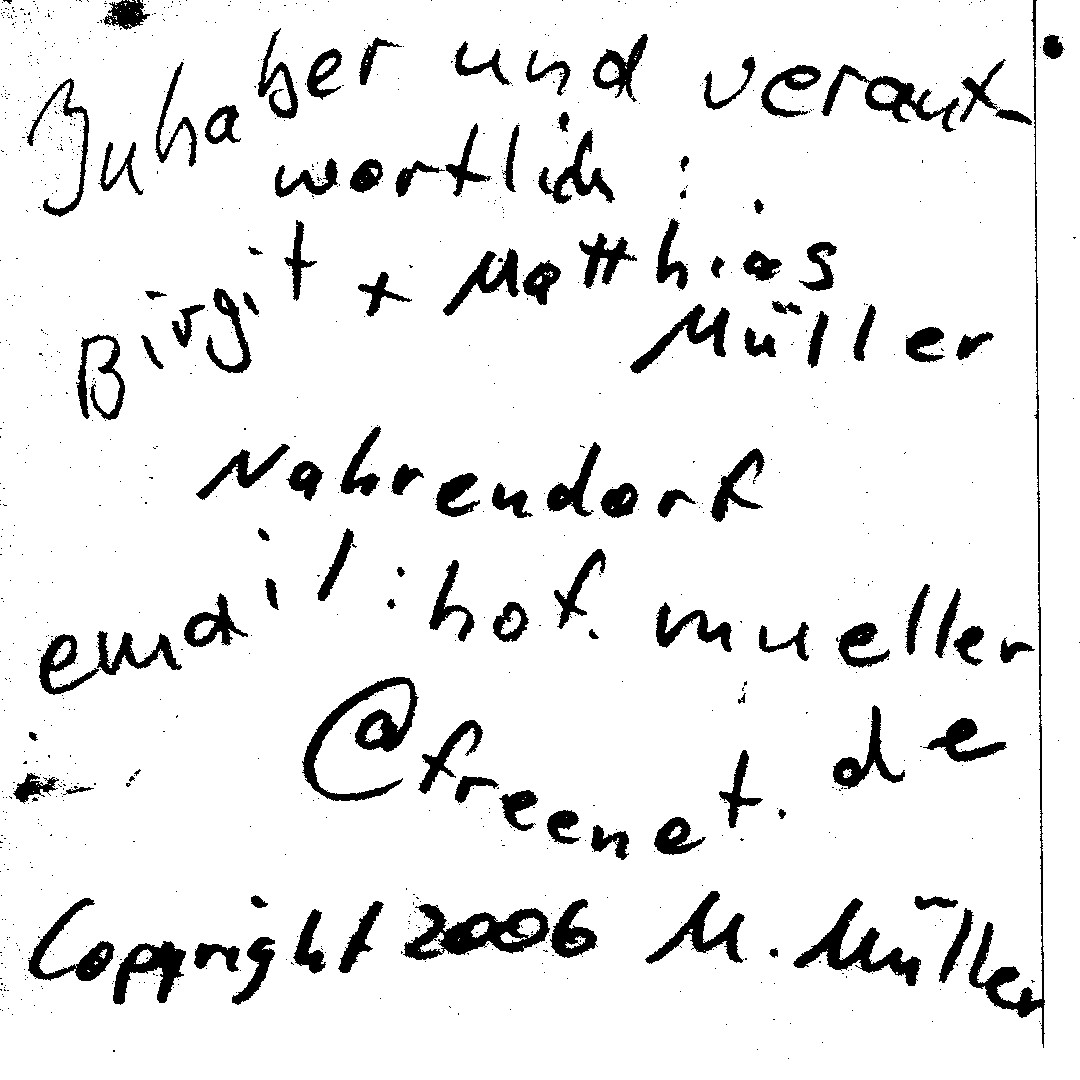 Inhaber und verant-
wortlich:
Birgit + Matthias
Müller
Nahrendorf
email: hof.mueller
@freenet.de
Copyright 2006 M. Müller